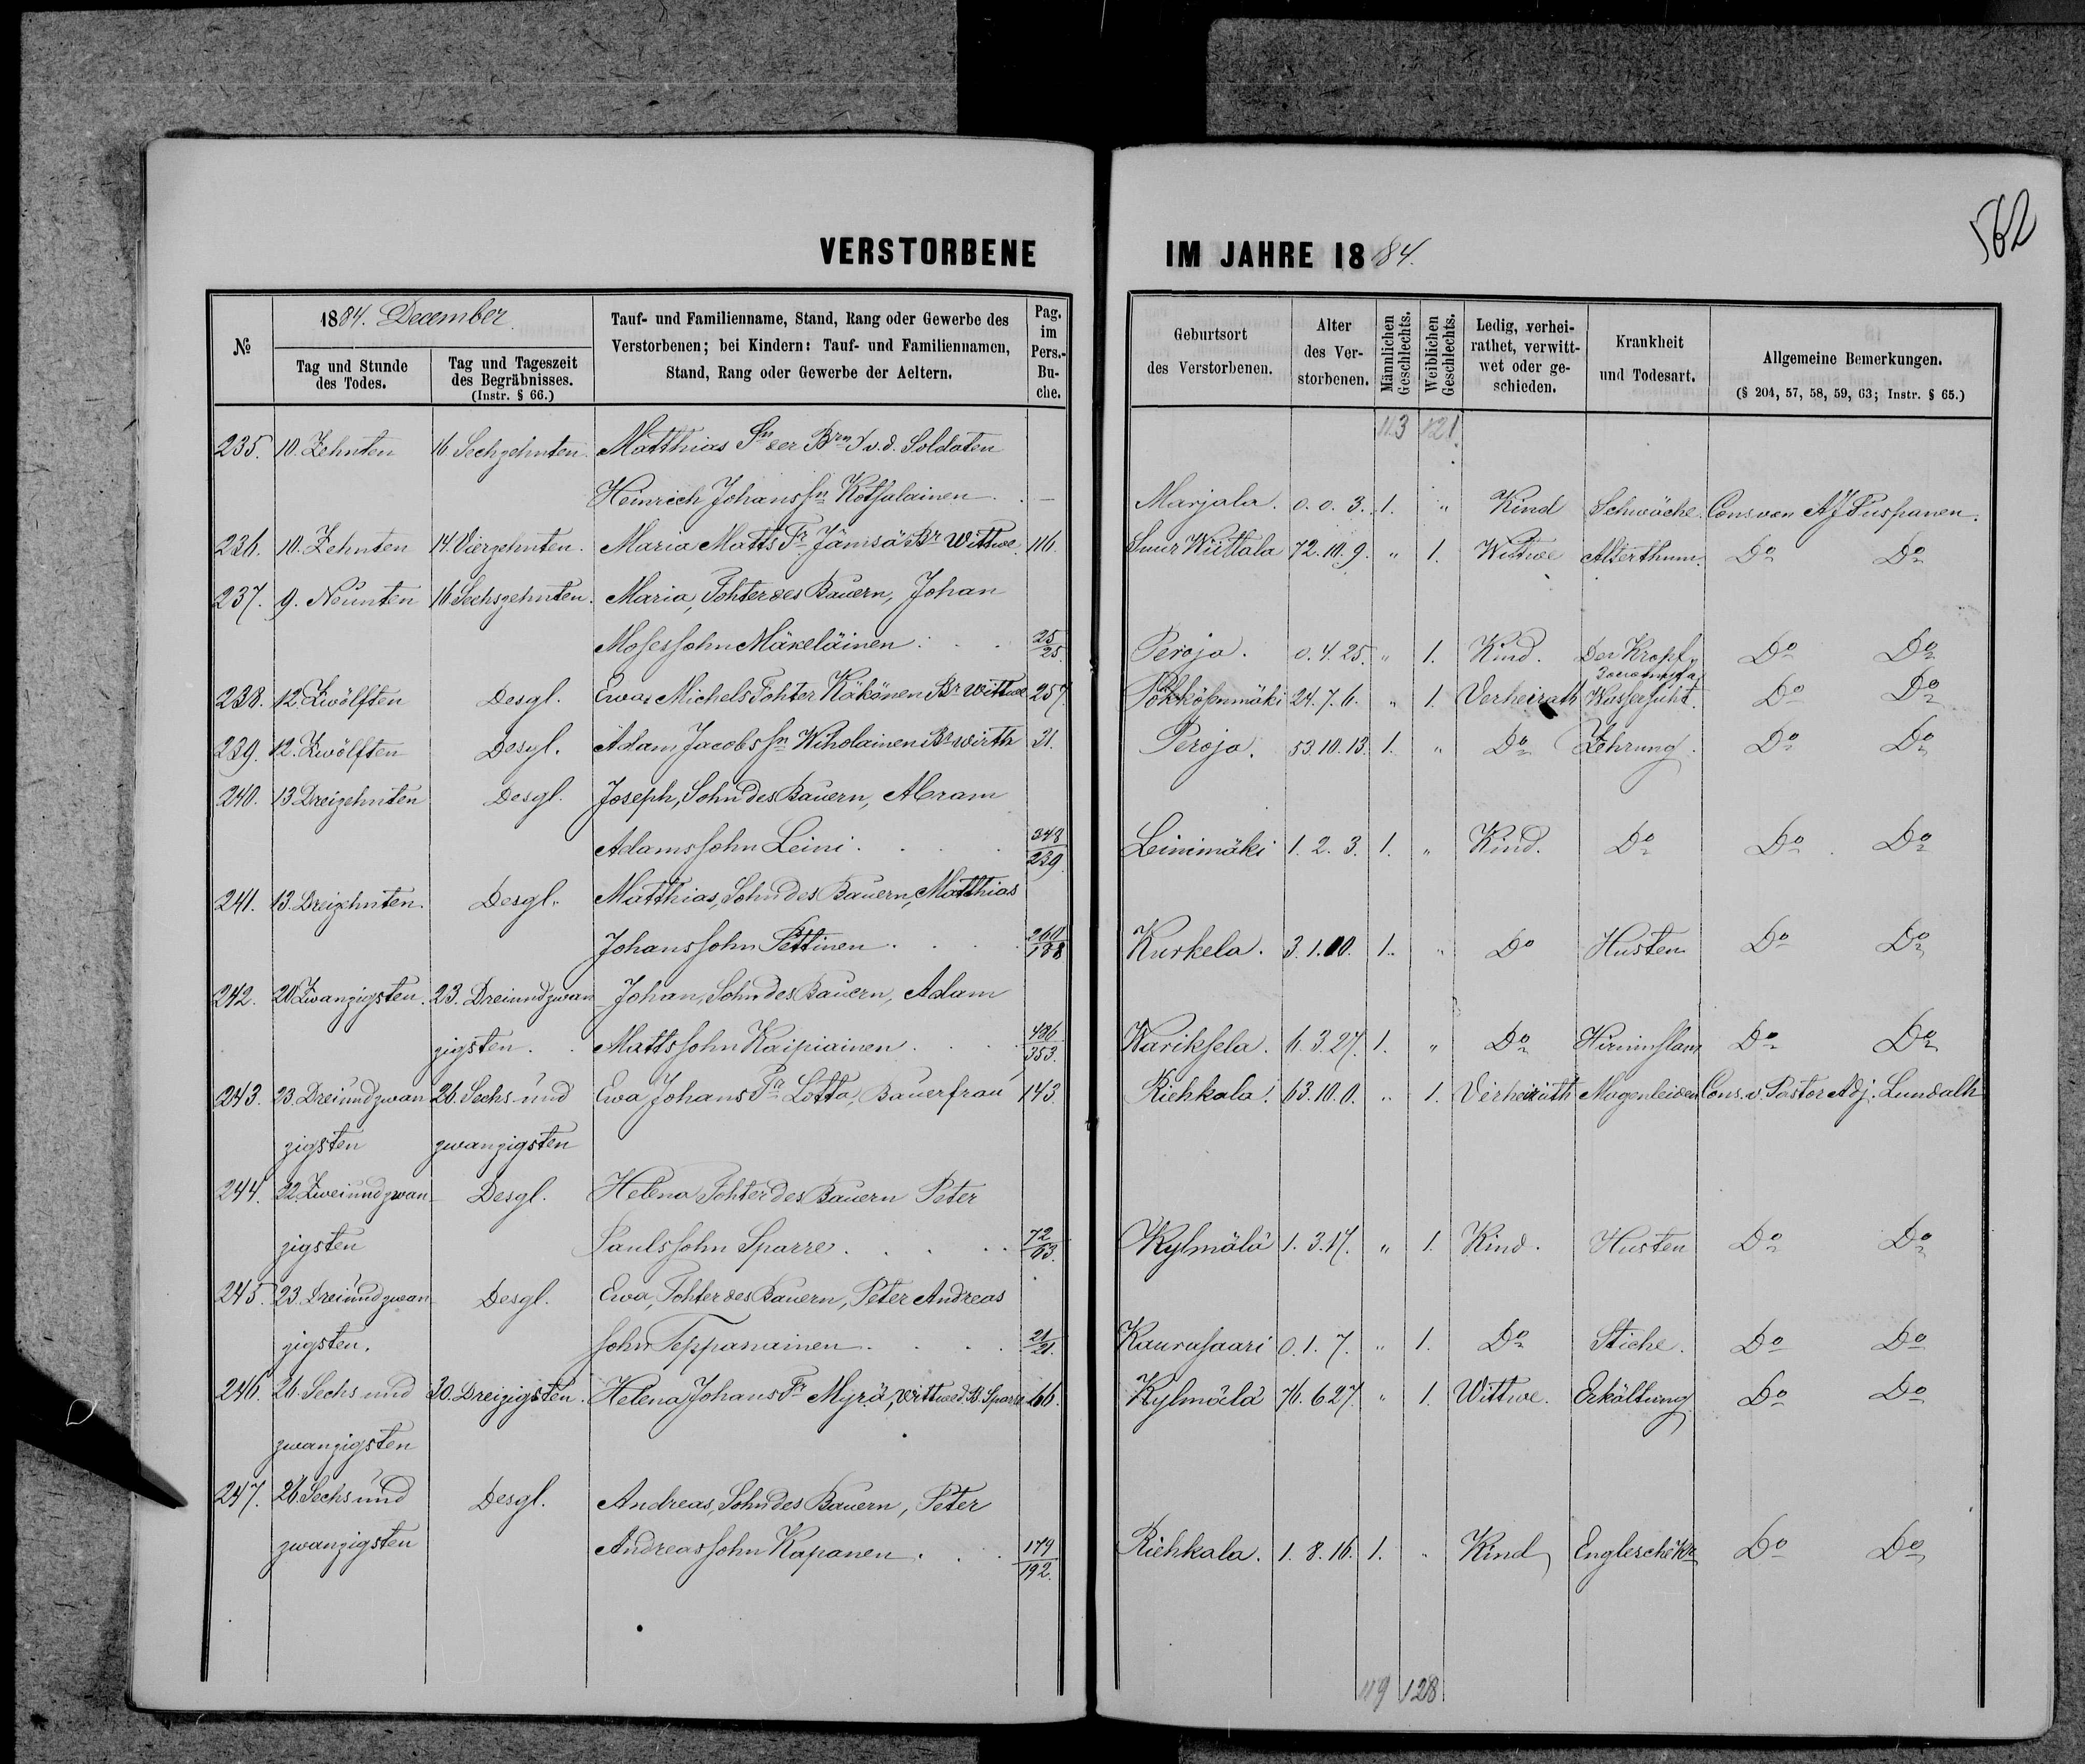 562
VERSTORBENE IM JAHRE 1884.
№
1884. December.
Tag und Stunde des Todes.
Tag und Tageszeit des Begräbnisses. (Instr. § 66.)
Tauf- und Familienname, Stand, Rang oder Gewerbe des Verstorbenen; bei Kindern: Tauf- und Familiennamen, Stand, Rang oder Gewerbe der Aeltern.
Pag. im Pers.-Buche.
Geburtsort des Verstorbenen.
Alter des Verstorbenen.
Männlichen Geschlechts.
Weiblichen Geschlechts.
Ledig, verheirathet, verwittwet oder geschieden.
Krankheit und Todesart.
Allgemeine Bemerkungen. (§ 204, 57, 58, 59, 63; Instr. § 65.)
113 121.
235. 10. Zehnten 16. Sechzehnten. Matthias Sn der Brn v. d. Soldaten
Heinrich Johanssn Kotsalainen . . — Marjala. 0. 0. 3. 1. " Kind Schwäche. Cons. von Puspanen.
236. 10. Zehnten 14. Vierzehnten. Maria Matts Tr Jämsä Br Wittwe. 116. Suur Wittala 72. 10. 9. " 1. Wittwe Alterthum. Do Do
237. 9. Neunten 16. Sechszehnten. Maria, Tohter des Bauern, Johan
Mosessohn Mäkeläinen . . 25/25. Peroja. 0. 4. 25. " 1. Kind. Der Kropf Do Do
238. 12. Zwölften Desgl. Ewa Michels Tohter Käkönen Br Wittwe 257. Pökkösenmäki 24. 7. 6. " 1. Verheirath Wassersuht. Do Do
239. 12. Zwölften Desgl. Adam Jacobssn Wiholainen Br wirth 31. Peroja. 53. 10. 13. 1. " Do Zehrung. Do Do
240. 13. Dreizehnten Desgl. Joseph, Sohn des Bauern, Abram
Adamssohn Leini . . . 348/239. Leinimäki 1. 2. 3. 1. " Kind. Do Do Do
241. 13. Dreizehnten. Desgl. Matthias, Sohn des Bauern, Matthias
Johanssohn Pettinen . . . 260/188 Kurkela. 3. 1. 10. 1. " Do Husten Do Do
242. 20. Zwanzigsten. 23. Dreiundzwan Johan, Sohn des Bauern, Adam
zigsten. Mattssohn Kaipiainen . . . 486/353. Wariksela. 6. 3. 27. 1. " Do Do Do
243. 23. Dreiundzwan 26. Sechs und Ewa Johans Tr Lotta, Bauerfrau 143. Riehkala. 63. 10. 0. " 1. Verheirath Magenleiden Cons. v. Pastor Adj. Lundalh
zigsten zwanzigsten
244. 22. Zweiundzwan Desgl. Helena Tohter des Bauern Peter
zigsten Paulssohn Sparre . . . . 72/63. Kylmälä 1. 3. 17. " 1. Kind. Husten Do Do
245. 23. Dreiundzwan Desgl. Ewa, Tohter des Bauern, Peter Andreas
zigsten. sohn Teppanainen . . . . 21/21. Kaurusaari 0. 1. 7. " 1. Do Stiche. Do Do
246. 26. Sechs und 30. Dreizigsten. Helena Johans Tr Myrä, Wittwe d. B. Sparre 66. Kylmälä 76. 6 27. " 1. Wittwe. Erkältung Do Do
zwanzigsten
247. 26. Sechs und Desgl. Andreas, Sohn des Bauern, Peter
zwanzigsten Andreassohn Kapanen . . . 179/192. Riehkala. 1. 8. 16. 1. " Kind Englesche Kr Do Do
119 128